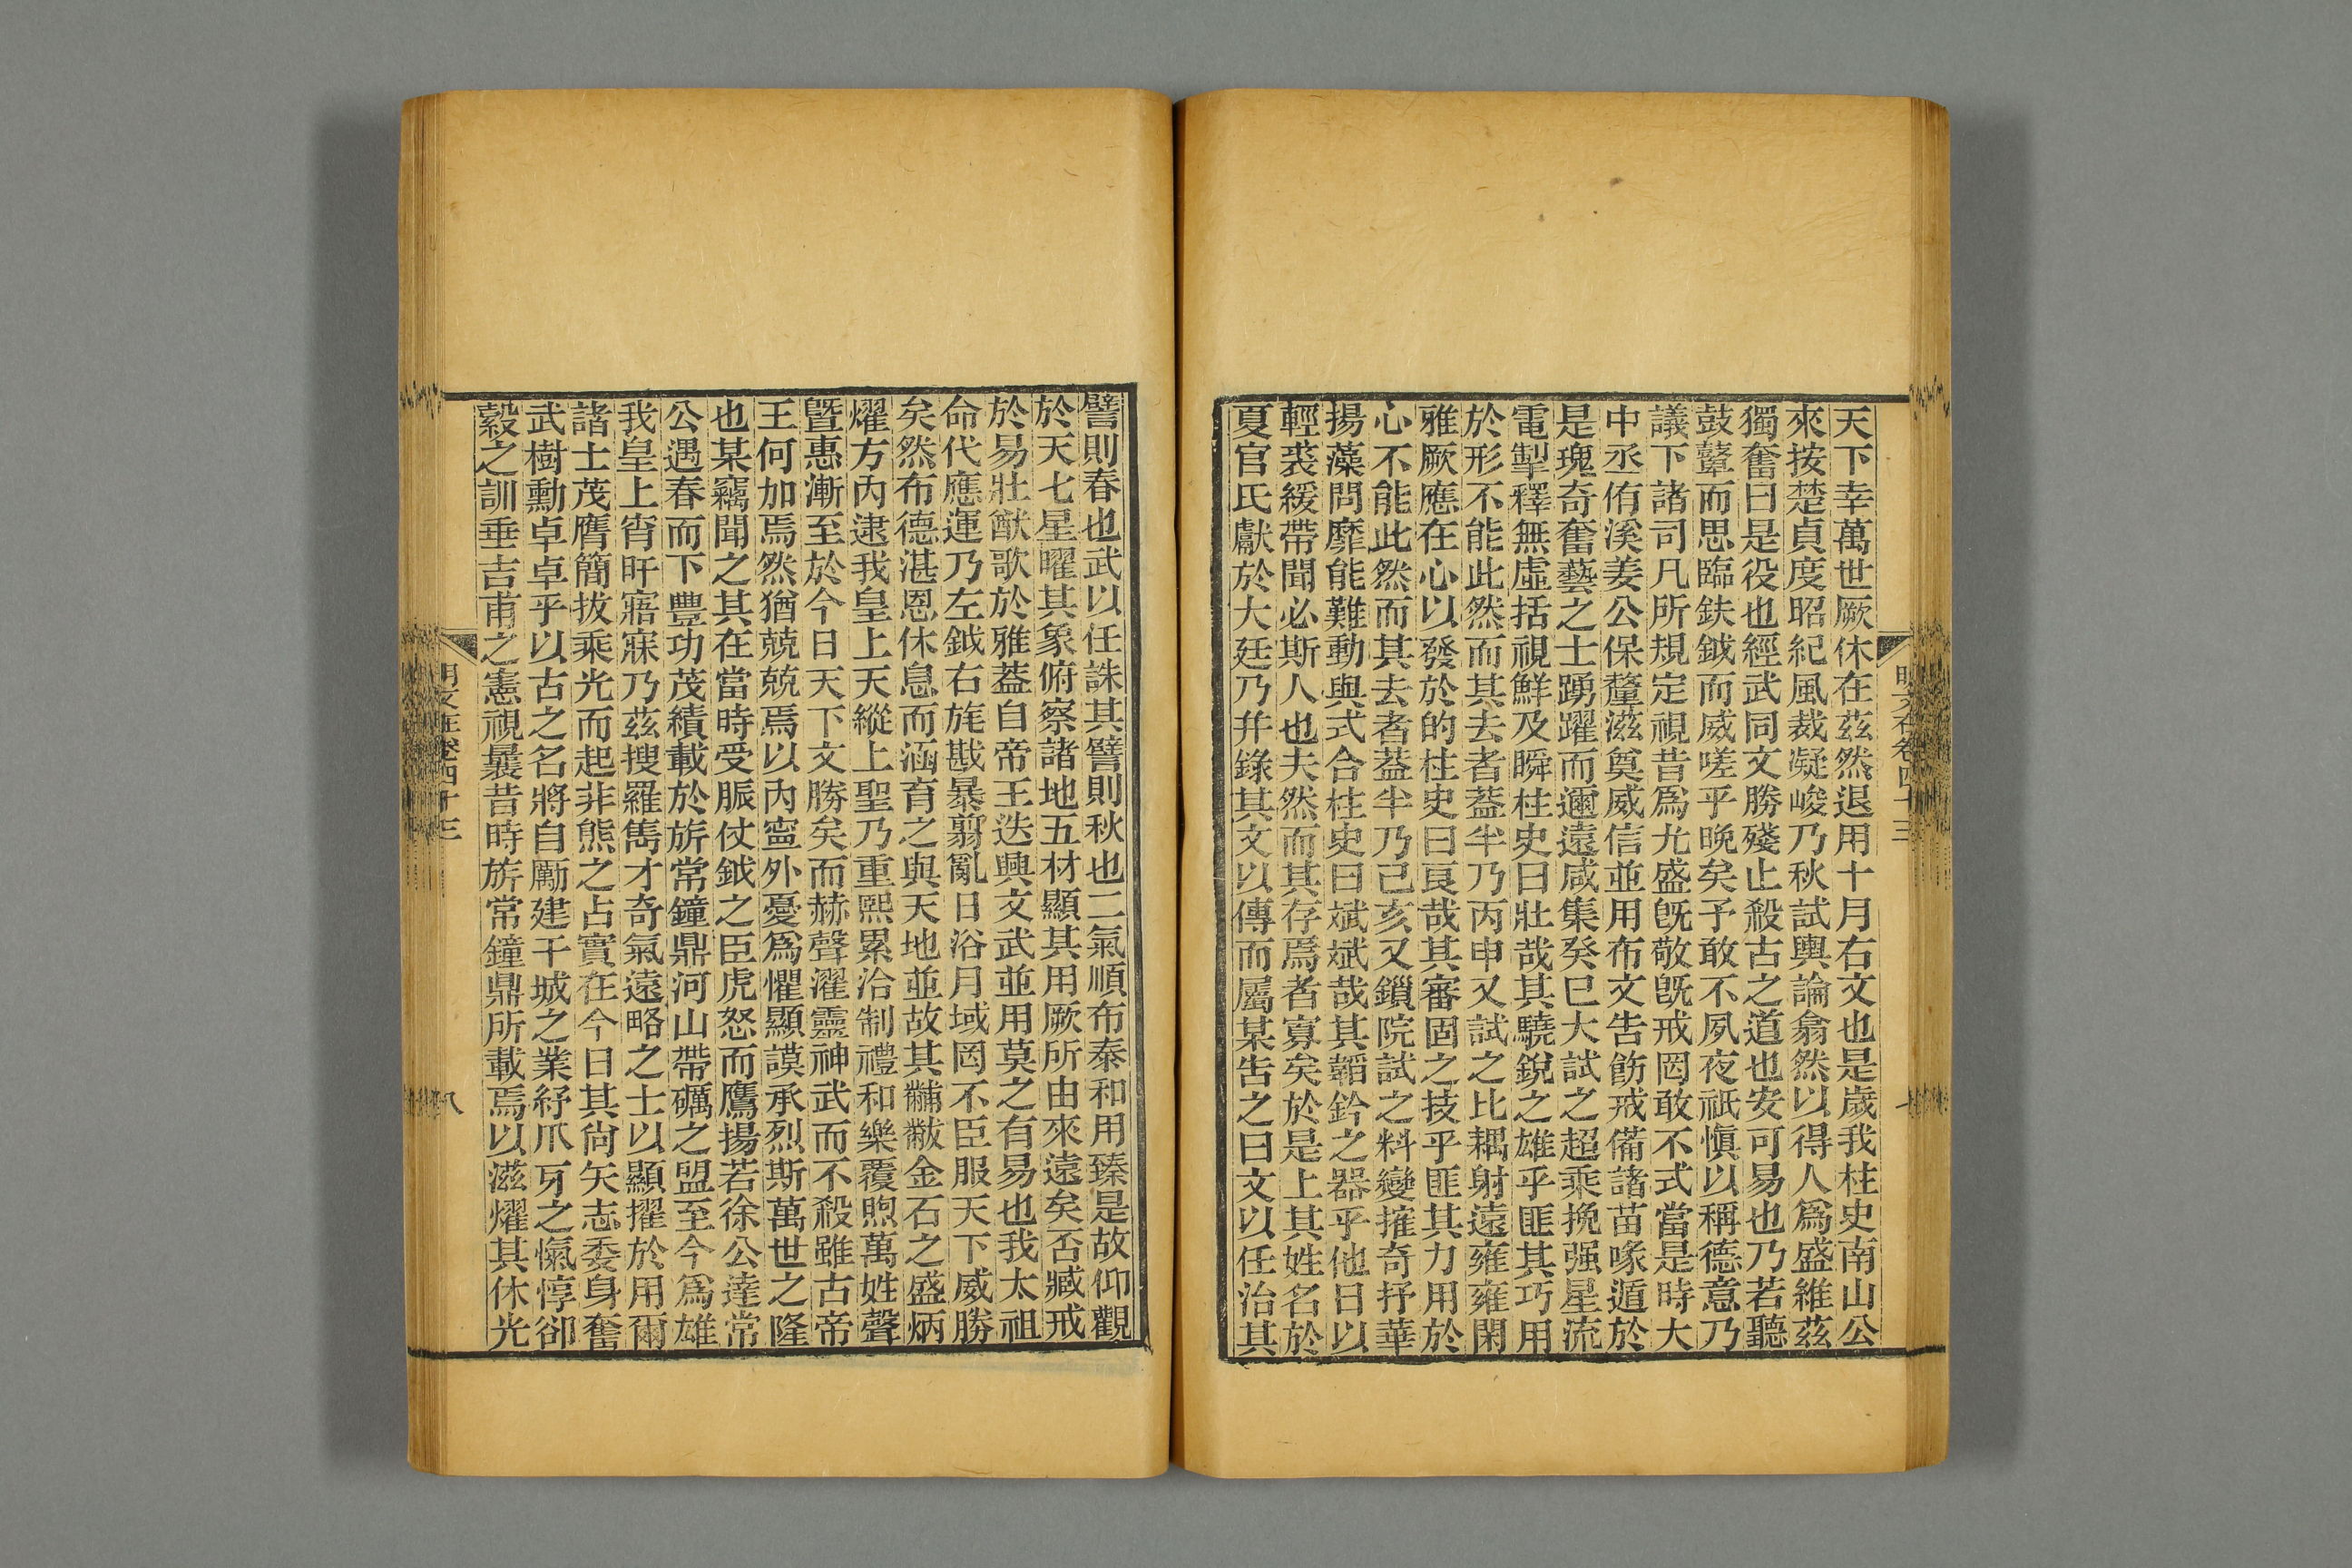 天下幸萬世厥休在茲然退用十月右文也是歲我柱史南山公
來按楚貞度昭紀風裁凝峻乃秋試輿論翕然以得人爲盛維茲
獨奮曰是役也經武同文勝殘止殺古之道也安可易也乃若聽
鼓鼙而思臨鈇鉞而威嗟乎晚矣予敢不夙夜祇愼以稱德意乃
議下諸司凡所規定視昔爲尤盛旣敬旣戒罔敢不式當是時大
中丞侑溪姜公保釐滋奠威信並用布文告飭戒備諸苗喙遁於
是瑰奇奮藝之士踴躍而邇遠咸集癸巳大試之超乘挽强星流
電掣釋無虛括視鮮及瞬柱史曰壯哉其驍銳之雄乎匪其巧用
於形不能此然而其去者蓋半乃丙申又試之比耦射遠雍雍閑
雅厥應在心以發於的柱史曰良哉其審固之技乎匪其力用於
心不能此然而其去者蓋半乃己亥又鎖院試之料變摧奇抒華
揚藻問靡能難動與式合柱史曰斌斌哉其韜鈐之器乎他日以
輕裘緩帶聞必斯人也夫然而其存焉者寡矣於是上其姓名於
夏官氏獻於大廷乃幷錄其文以傳而屬某告之曰文以任治其
明文在卷四十三
七
譬則春也武以任誅其譬則秋也二氣順布泰和用臻是故仰觀
於天七星曜其象俯察諸地五材顯其用厥所由來遠矣否臧戒
於易壯猷歌於雅蓋自帝王迭興文武並用莫之有易也我太祖
命代應運乃左鉞右旄戡暴翦亂日浴月域罔不臣服天下威勝
矣然布德湛恩休息而涵育之與天地並故其黼黻金石之盛炳
燿方內逮我皇上天縱上聖乃重熙累洽制禮和樂覆煦萬姓聲
曁惠漸至於今日天下文勝矣而赫聲濯靈神武而不殺雖古帝
王何加焉然猶兢兢焉以內寍外憂爲懼顯謨承烈斯萬世之隆
也某竊聞之其在當時受脤仗鉞之臣虎怒而鷹揚若徐公達常
公遇春而下豐功茂績載於旂常鐘鼎河山帶礪之盟至今爲雄
我皇上宵旰寤寐乃茲搜羅雋才奇氣遠略之士以顯擢於用爾
諸士茂膺簡拔乘光而起非熊之占實在今日其尙矢志委身奮
武樹勳卓卓乎以古之名將自勵建干城之業紓爪牙之愾惇卻
縠之訓垂吉甫之憲視曩昔時旂常鐘鼎所載焉以滋燿其休光
明文在卷四十三
八